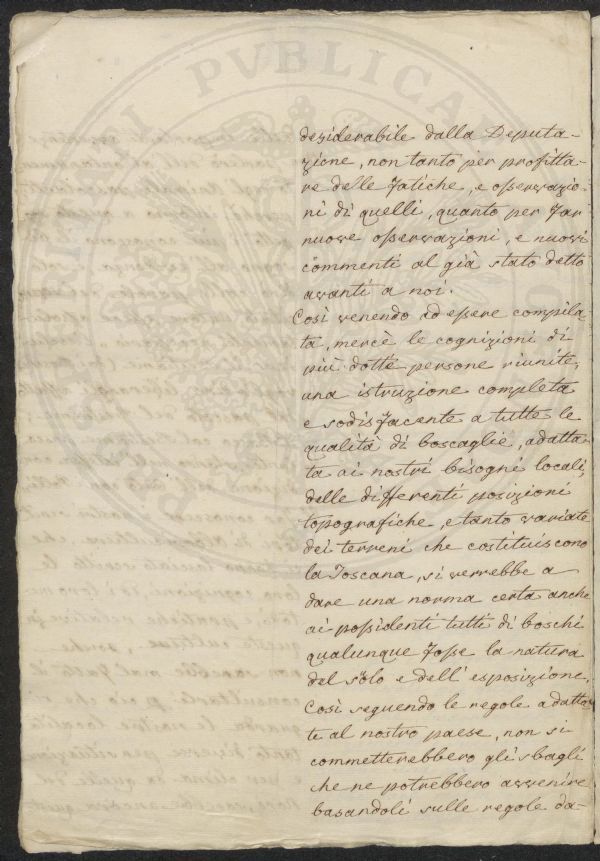 desiderabile dalla Deputa-
zione, non tanto per profitta-
re delle fatiche, e osservazio-
ni di quelli, quanto per far
nuove osservazioni, e nuovi
commenti al già stato detto
avanti a noi.
Così venendo ad essere compila-
ta, mercè le cognizioni di
più dotte persone riunite,
una istruzione completa
e sodisfacente a tutte le
qualità di boscaglie, adatta-
ta ai nostri bisogni locali,
delle differenti posizioni
topografiche, e tanto variate
dei terreni che costituiscono
la Toscana, si verrebbe a
dare una norma certa anche
ai possidenti tutti di boschi
qualunque fosse la natura
del sòlo e dell'esposizione.
Così seguendo le regole adatta-
te al nostro paese, non si
commetterebbero gli sbagli
che ne potrebbero avvenire
basandoli sulle regole da-